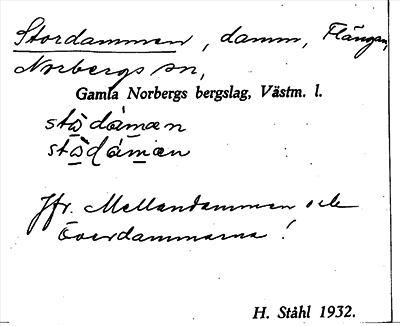 Stordammen, damm, Flängan,
Norbergs sn,
Gamla Norbergs bergslag, Västm. l.
stɷ̀dàmæn
stɷ̀dàmæn
Jfr. Mellandammen och
Överdammarna!
H. Ståhl 1932.